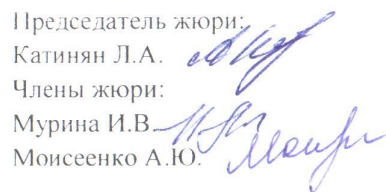 Председатель жюри:
Катинян Л.А.
Члены жюри:
Мурина И.В.
Моисеенко А.Ю.